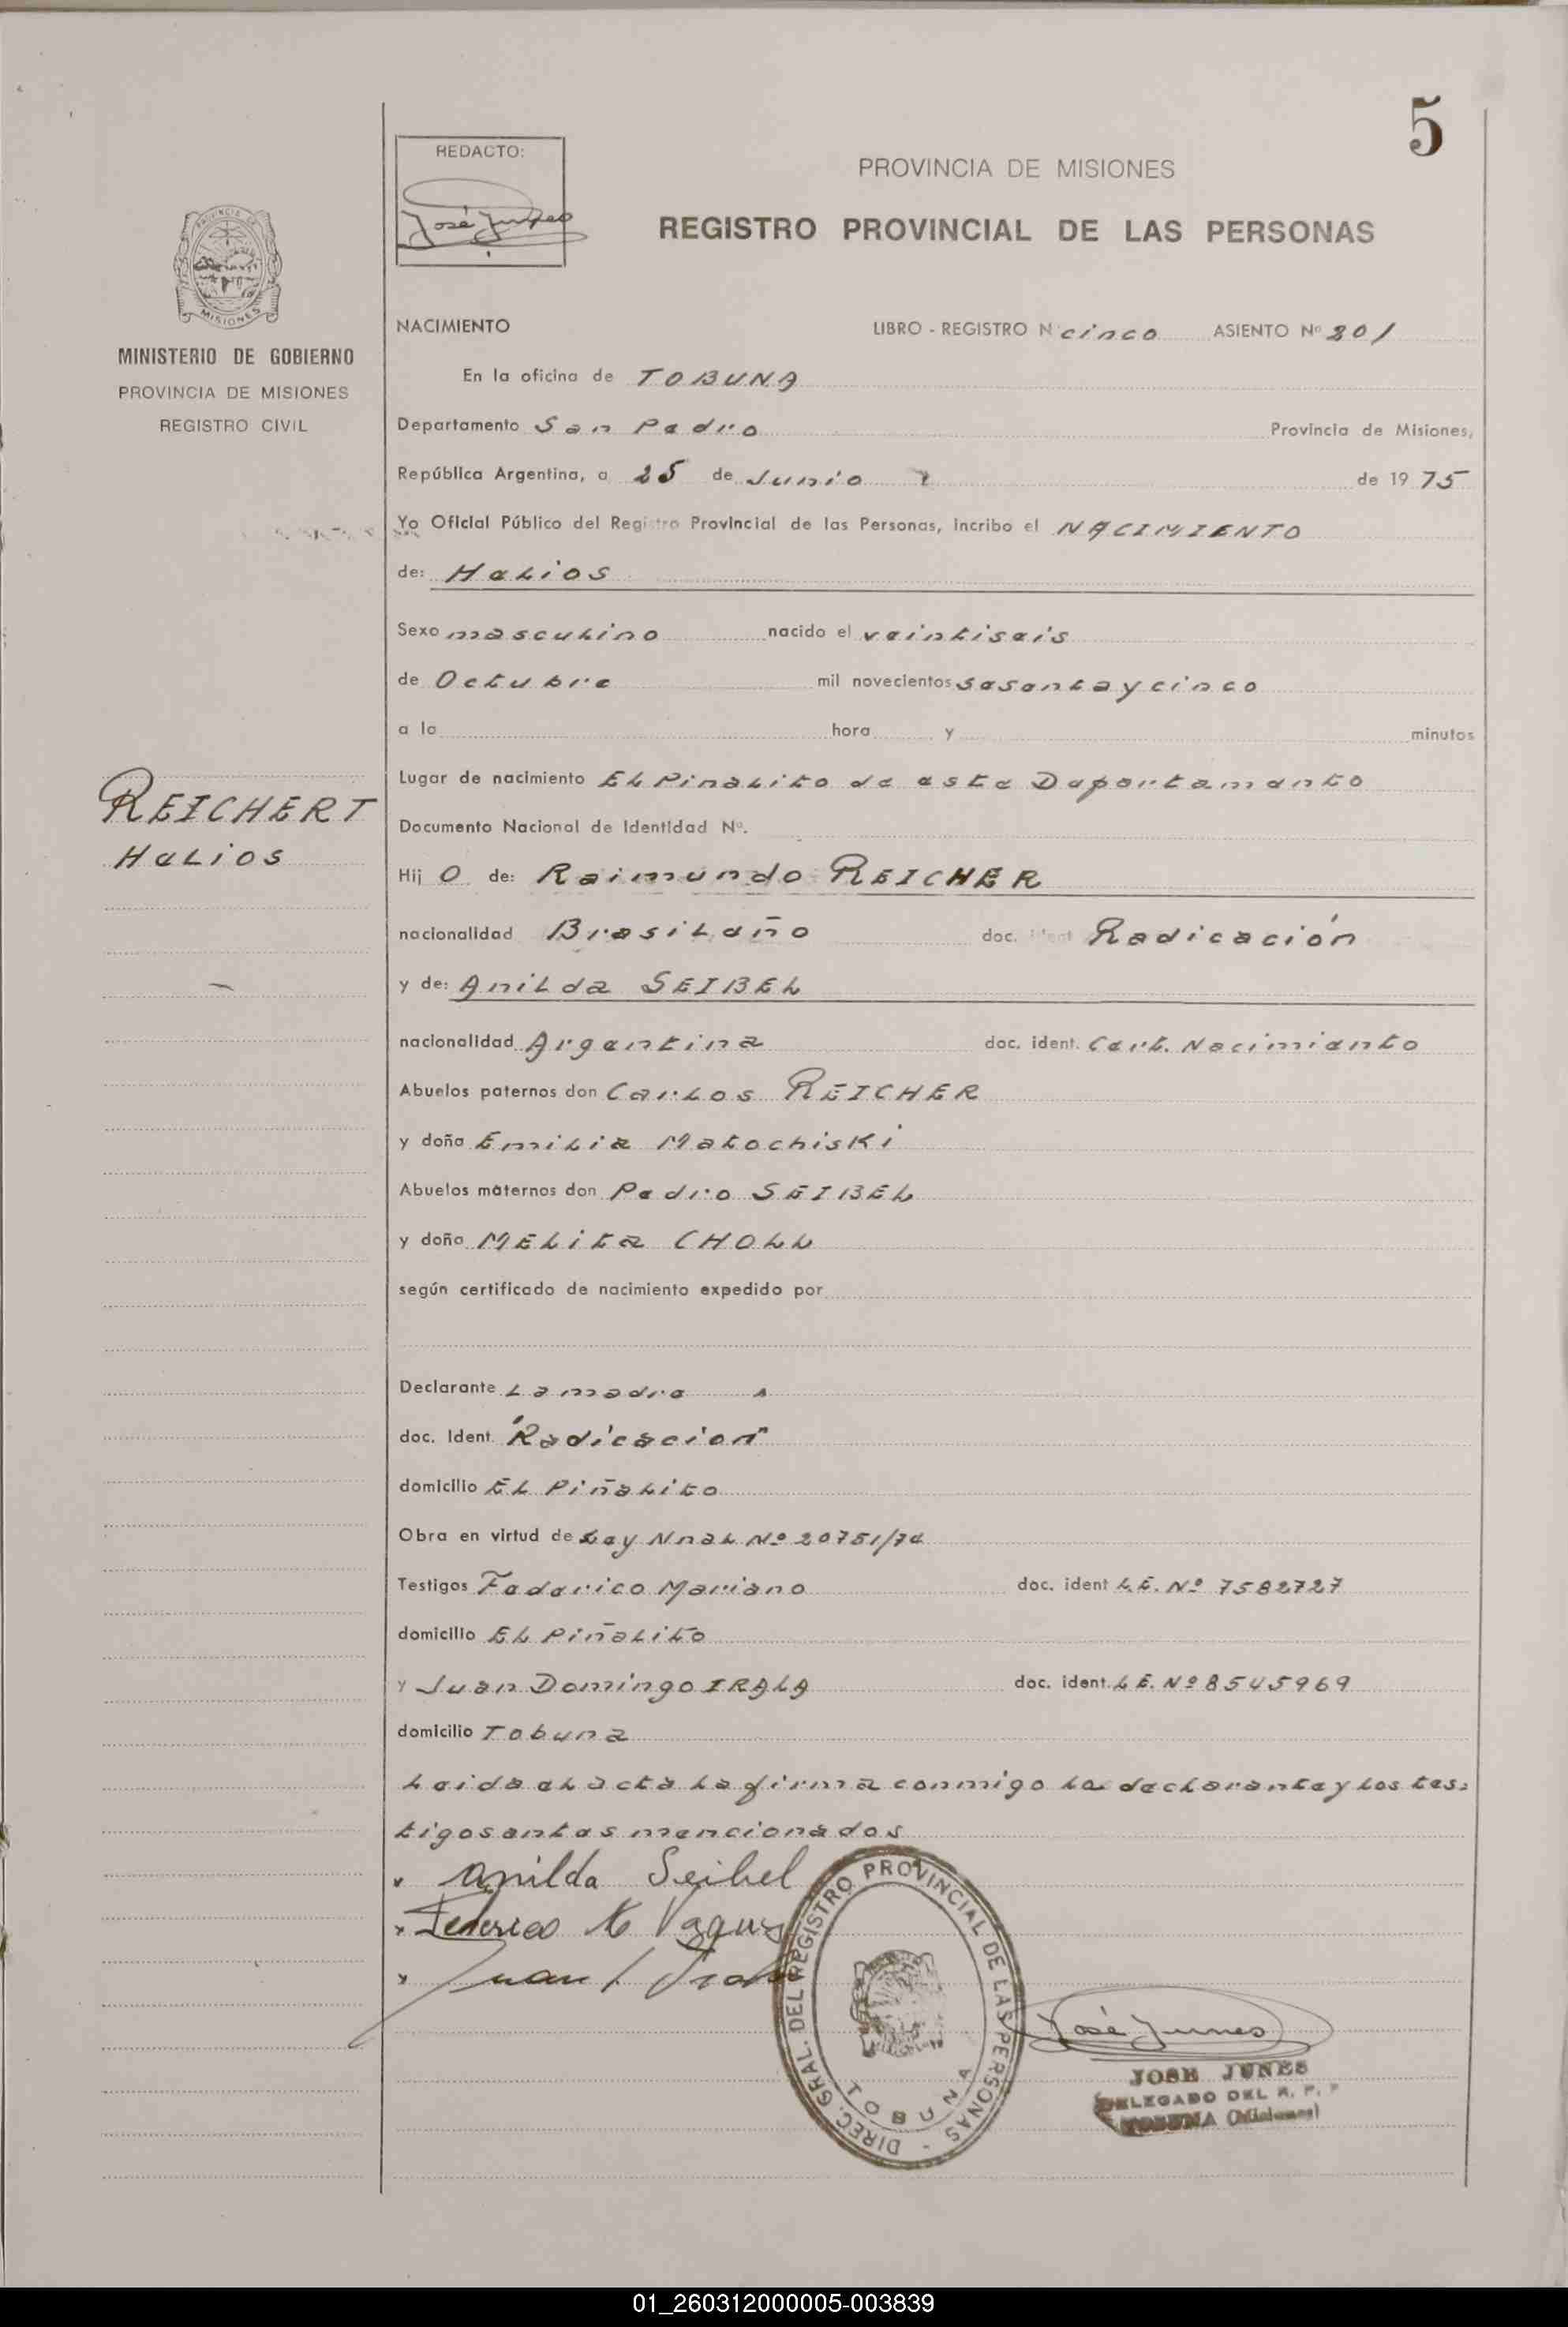 5
REDACTO:
José Junes
PROVINCIA DE MISIONES
REGISTRO PROVINCIAL DE LAS PERSONAS
PROVINCIA DE
MISIONES
MINISTERIO DE GOBIERNO
PROVINCIA DE MISIONES
REGISTRO CIVIL
NACIMIENTO LIBRO - REGISTRO N° cinco ASIENTO Nº 201
En la oficina de TOBUNA
Departamento San Pedro Provincia de Misiones,
República Argentina, a 25 de Junio de 1975
Yo Oficial Público del Registro Provincial de las Personas, incribo el NACIMIENTO
de: Helios
Sexo masculino nacido el veintiseis
de Octubre mil novecientos sesenta y cinco
a la hora y minutos
Lugar de nacimiento El Pinalito de este Departamento
REICHERT
Helios
Documento Nacional de Identidad Nº.
Hij O de: Raimundo REICHER
nacionalidad Brasileño doc. ident Radicación
y de: Anilda SEIBEL
nacionalidad Argentina doc. ident. Cert. Nacimiento
Abuelos paternos don Carlos REICHER
y doña Emilia Matochiski
Abuelos maternos don Pedro SEIBEL
y doña MELita CHOLL
según certificado de nacimiento expedido por
Declarante La madre
doc. Ident. "Radicacion"
domicilio El Piñalito
Obra en virtud de Ley Nnal Nº 20751/74
Testigos Federico Mariano doc. ident L.E. Nº 7582727
domicilio El Piñalito
y Juan Domingo IRALA doc. ident. L.E. Nº 8545969
domicilio Tobuna
Leida el acta la firma conmigo la declarante y los tes-
tigos antes mencionados
Anilda Seibel
Federico
Juan
DIREC. GRAL. DEL REGISTRO PROVINCIAL DE LAS PERSONAS -
TOBUNA
José Junes
JOSE JUNES
DELEGADO DEL R. P. P
TOBUNA (Misiones)
01_260312000005-003839